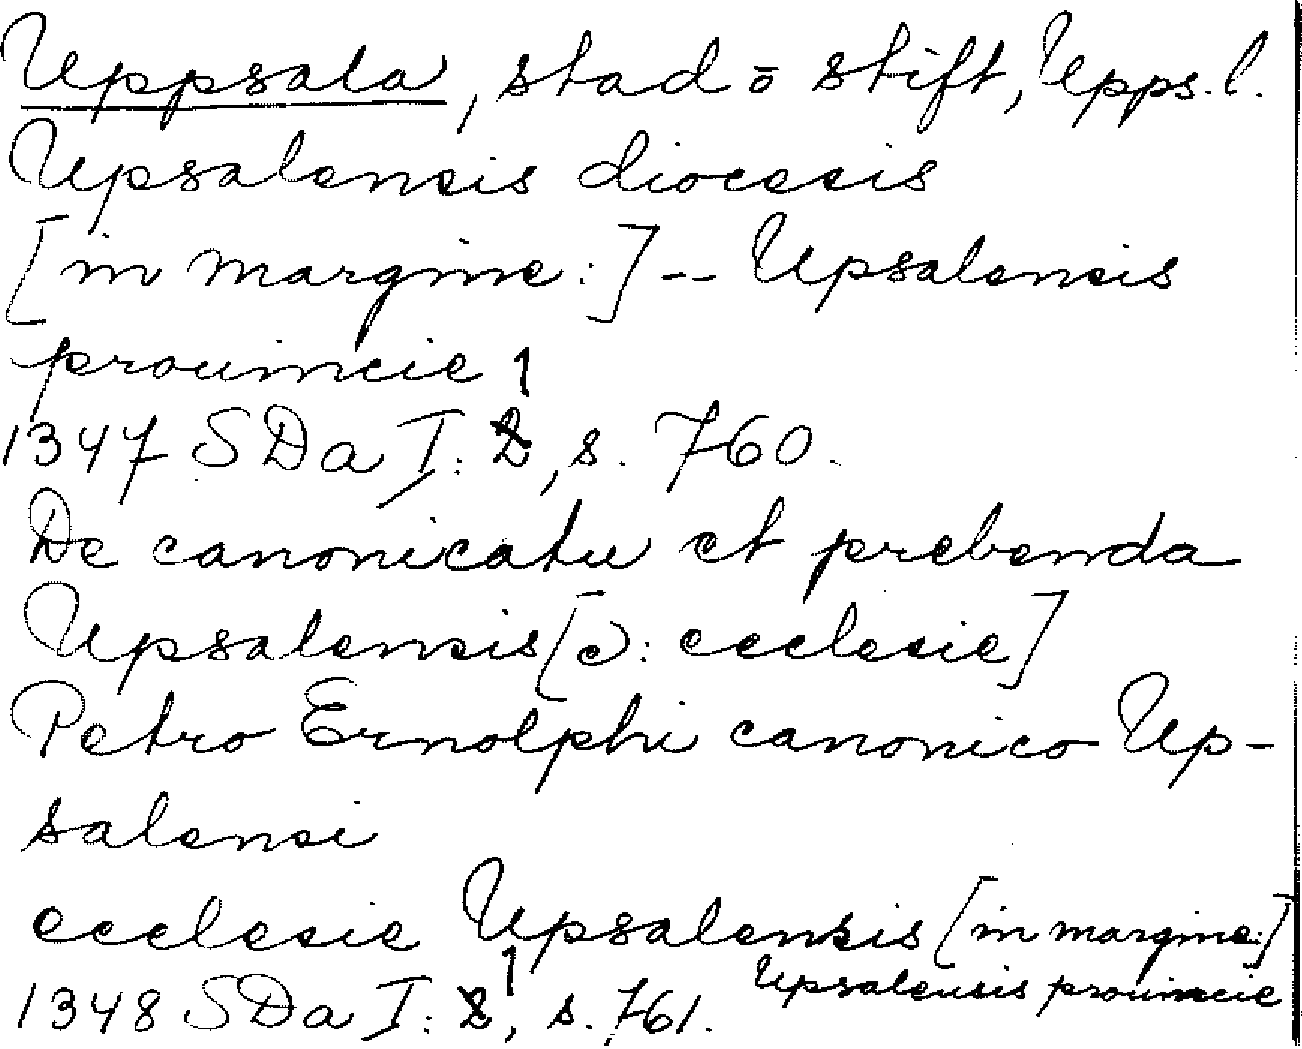 Uppsala, stad o stift, Upps. l.
Upsalensis diocesis
[in margine:] -- Upsalensis
prouincie
1347 SDa I: 1, s. 760.
De canonicatu et prebenda
Upsalensis [ɔ: ecclesie]
Petro Ernolphi canonico Up-
salensi
ecclesie Upsalensis [in margine:]
Upsalensis prouincie
1348 SDa I: 1, s. 761.